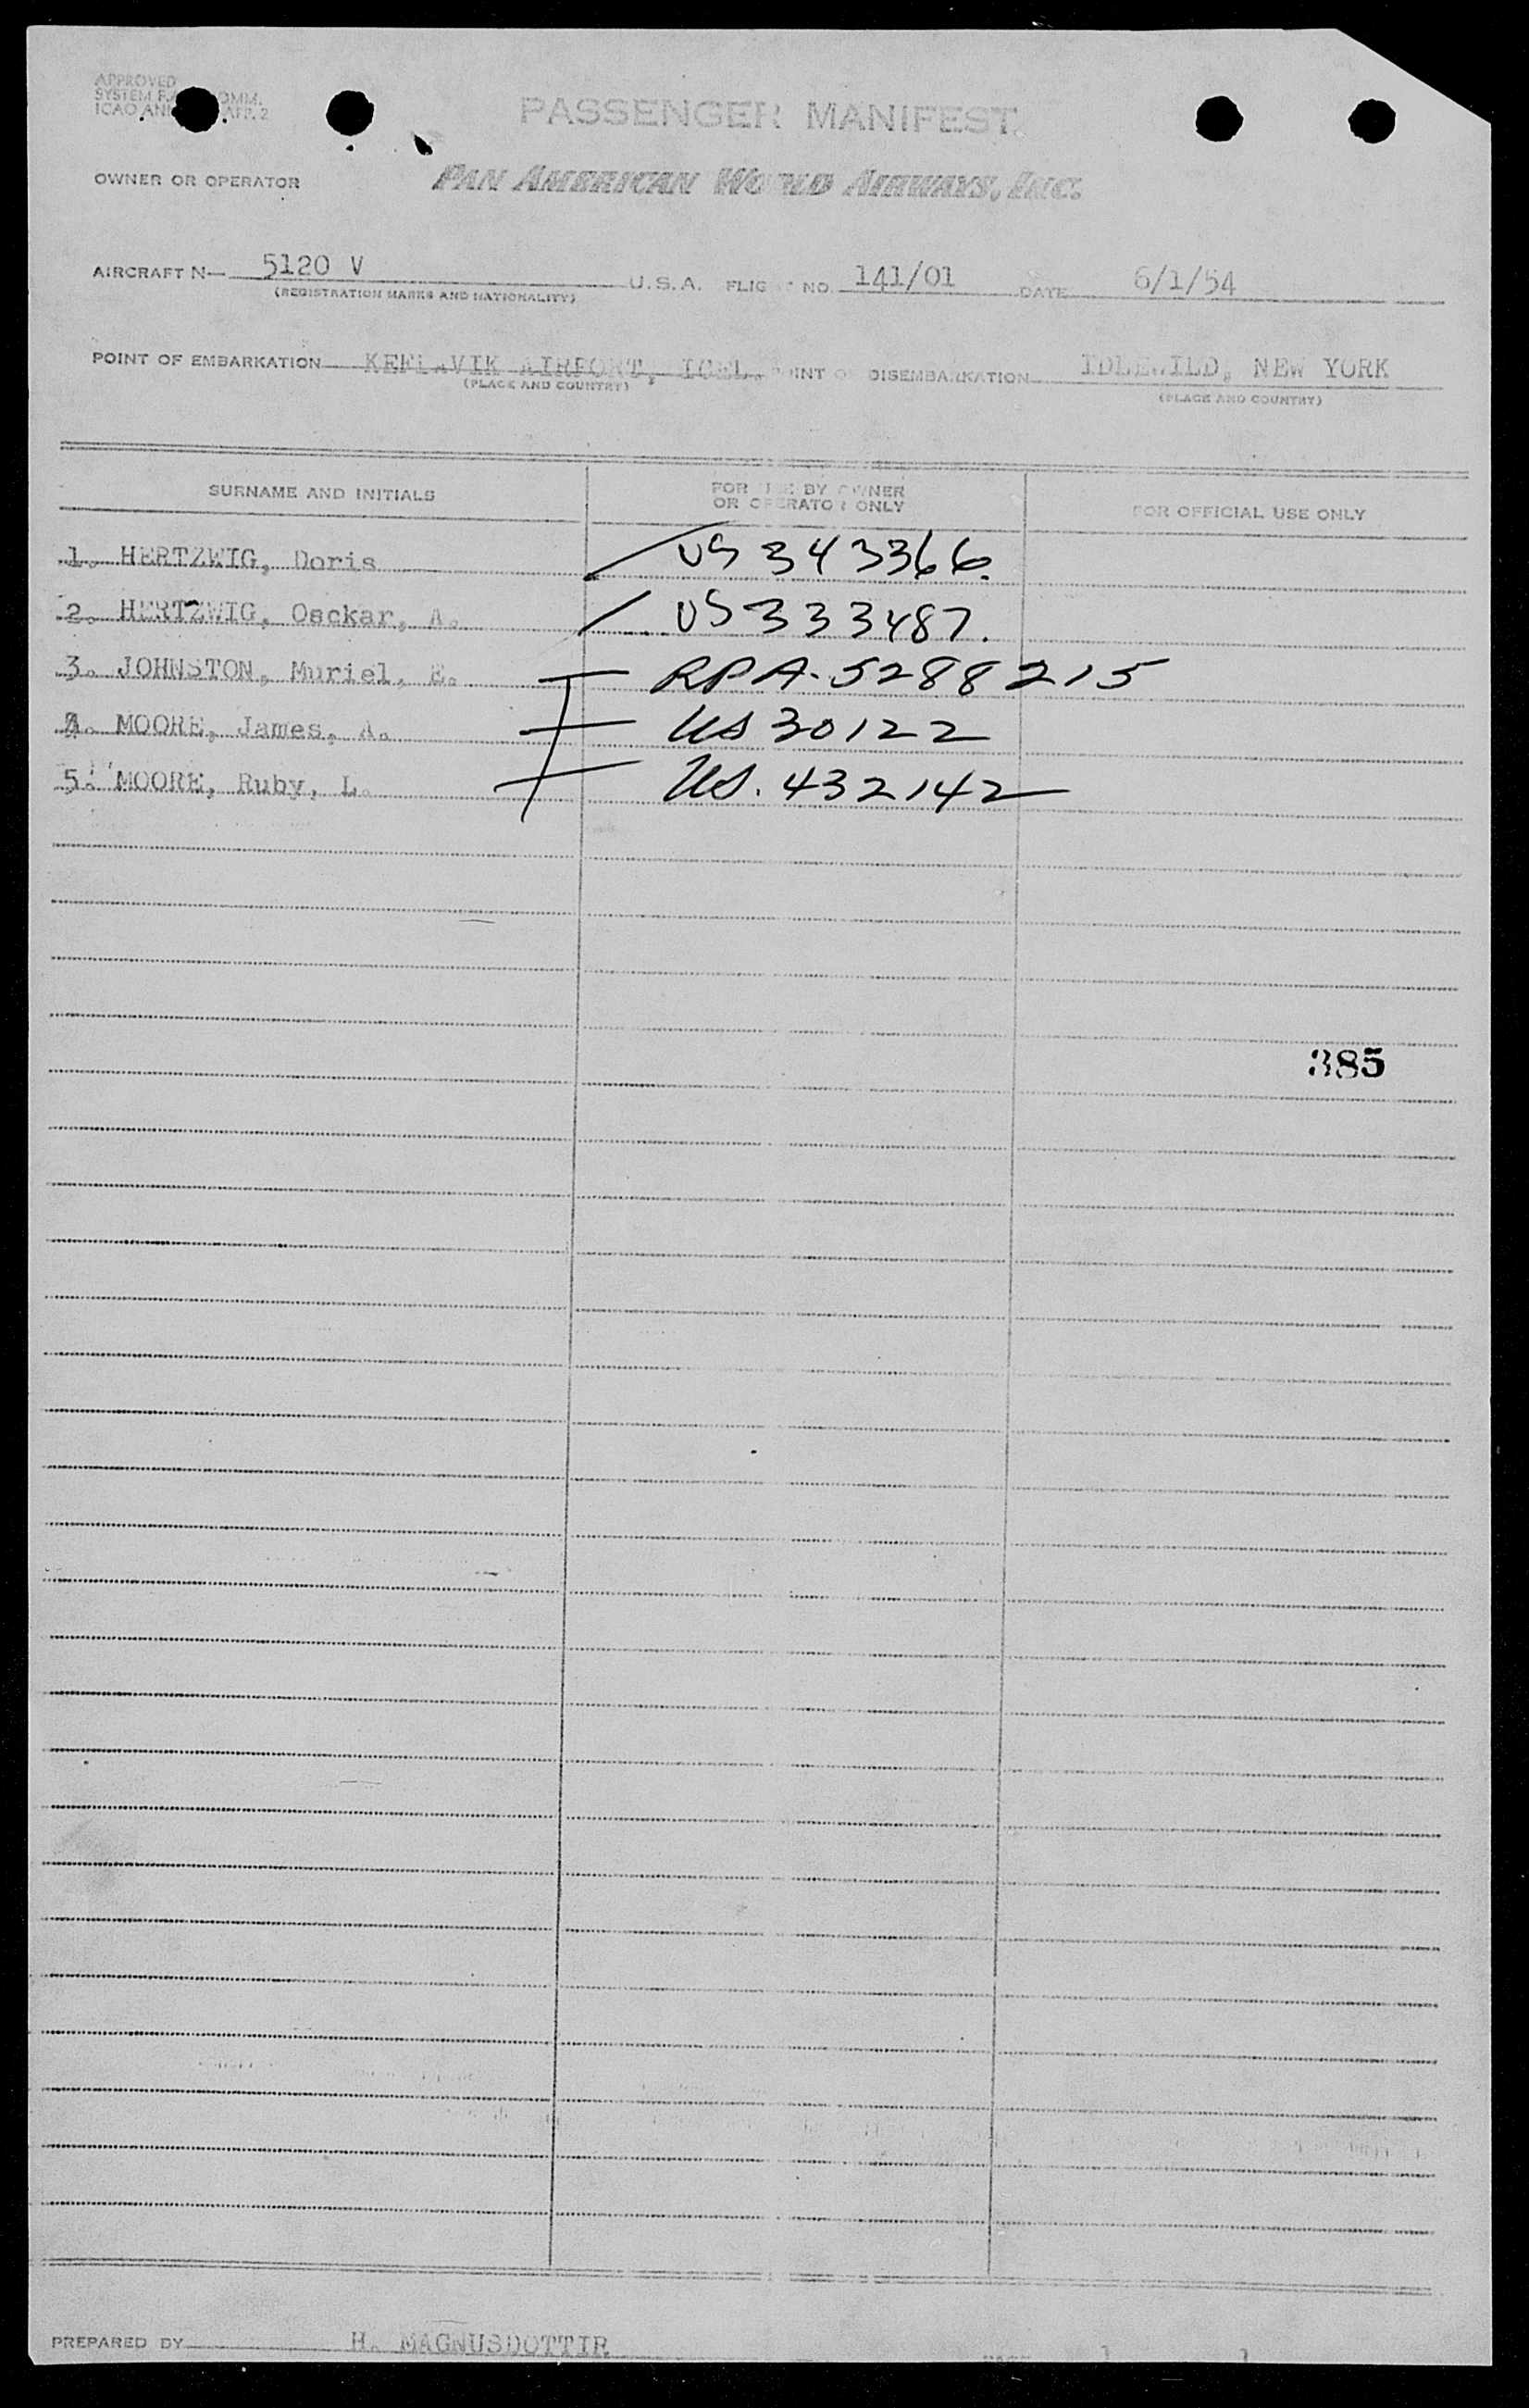 APPROVED
SYSTEM
ICAO
PASSENGER MANIFEST
OWNER OR OPERATOR PAN AMERICAN WORLD AIRWAYS, INC.
AIRCRAFT N— 5120 V U.S.A. FLIGHT NO. 141/01 DATE 6/1/54
(REGISTRATION MARKS AND NATIONALITY)
POINT OF EMBARKATION KEFLAVIK AIRPORT, ICEL. POINT OF DISEMBARKATION IDLEWILD, NEW YORK
(PLACE AND COUNTRY) (PLACE AND COUNTRY)
SURNAME AND INITIALS FOR USE BY OWNER OR OPERATOR ONLY FOR OFFICIAL USE ONLY
1. HERTZWIG, Doris US 343366.
2. HERTZWIG, Osckar, A. US 333487.
3. JOHNSTON, Muriel, E. RPA. 5288215
4. MOORE, James, A. US 30122
5. MOORE, Ruby, L. US. 432142
385
PREPARED BY H. MAGNUSDOTTIR